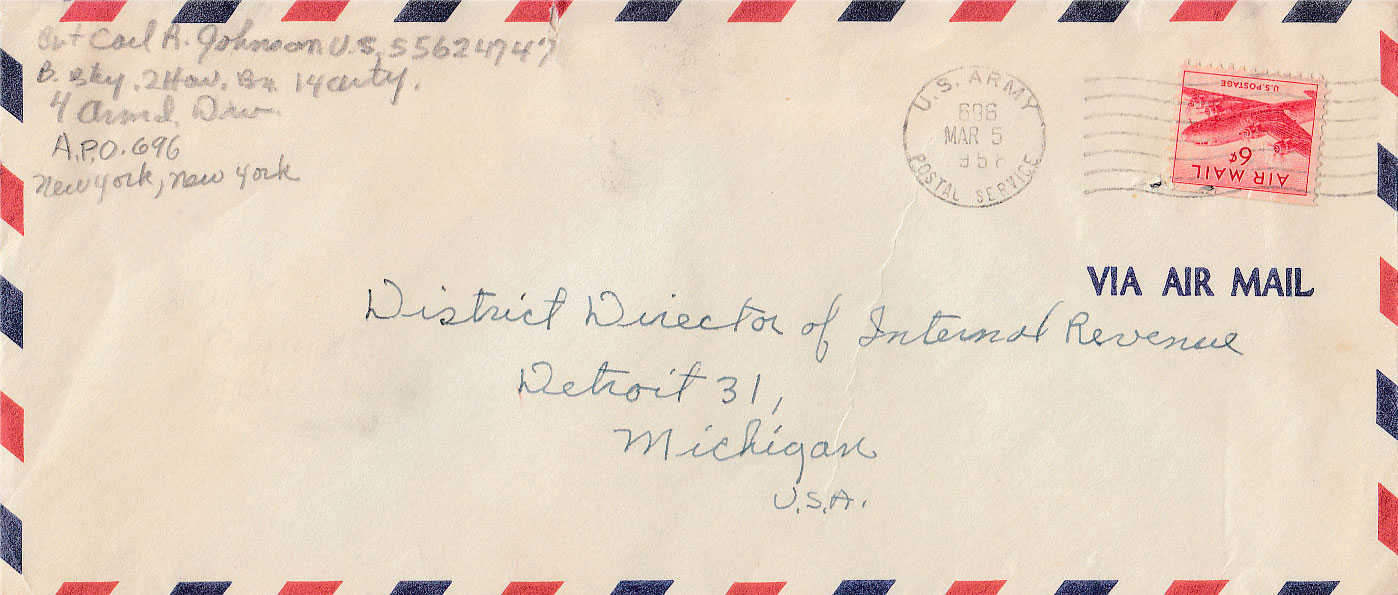 Pvt Carl A. Johnson U.S. 55624747
B. Btry. 2 How. Bn. 14 arty.
4 Armd. Div.
A.P.O. 696
New York, New York
U.S. ARMY
696
MAR 5
POSTAL SERVICE
U.S. POSTAGE
6¢
AIR MAIL
VIA AIR MAIL
District Director of Internal Revenue
Detroit 31,
Michigan
U.S.A.